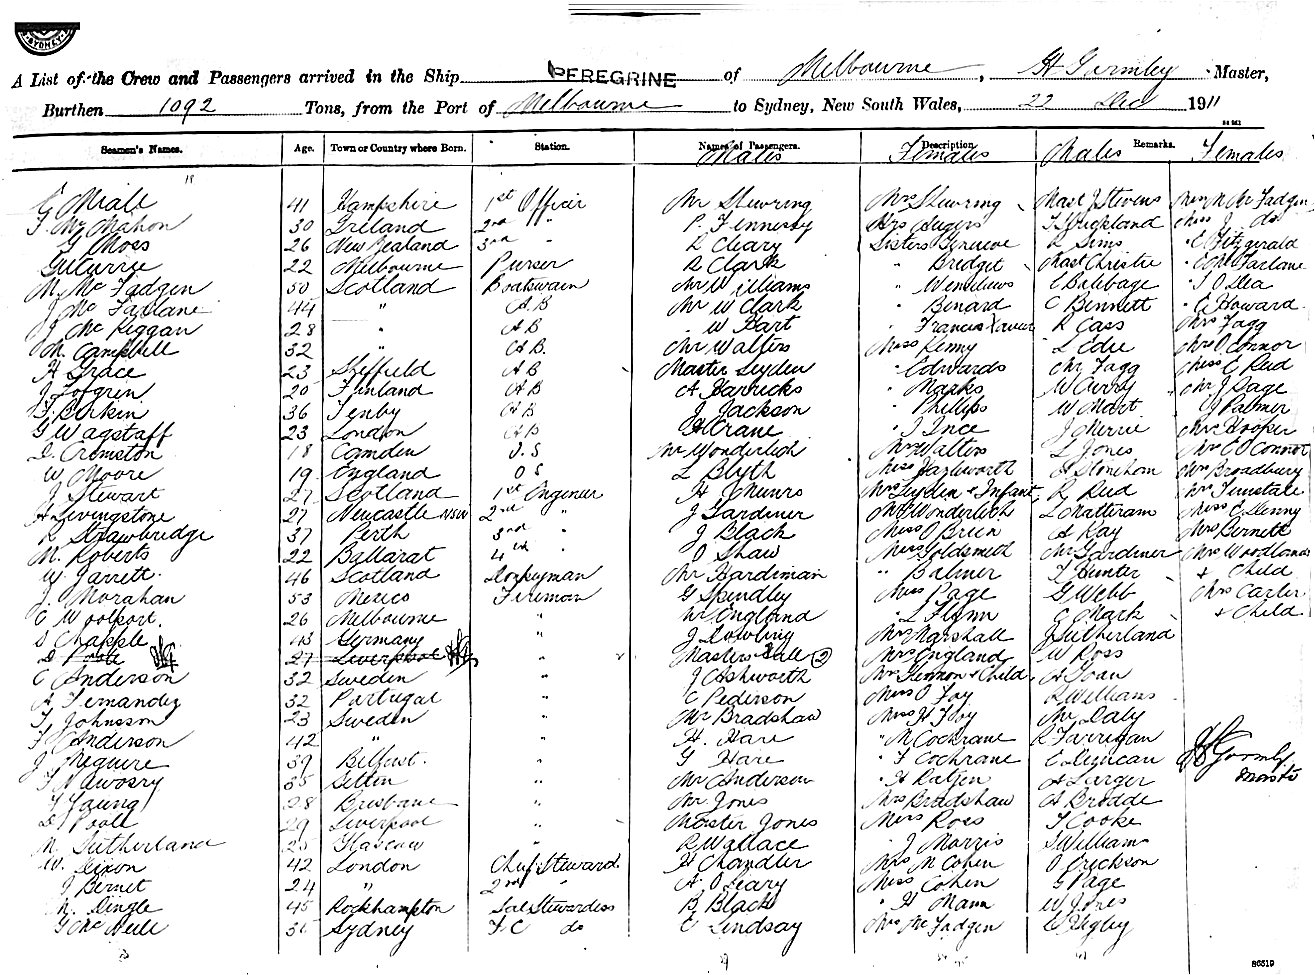 SYDNEY
A List of the Crew and Passengers arrived in the Ship PEREGRINE of Melbourne, H Gormley Master,
Burthen 1092 Tons, from the Port of Melbourne to Sydney, New South Wales, 22 Dec 1911
Seamen's Names. Age. Town or Country where Born. Station. Names of Passengers. Description. Remarks.
Males Females Males Females
G Miall 41 Hampshire 1st Officer Mr Stewring Mrs Stewring Mast J Stevens Mrs McFadgen
F McMahon 30 Ireland 2nd " P. Fennessy T Strickland Miss J do
G Moss 26 New Zealand 3rd " L Cleary Sisters R Sims " C Fitzgerald
G Currie 22 Melbourne Purser R Clark " Bridget Mast Christie " McFarlane
M McFadgen 50 Scotland Boatswain Mr Williams " C Babbage " J O Dea
J McFarlane 44 " A B Mr W Clark " Benard C Bennett " E Howard
J McPiggan 28 " A B " W Hart " Francis Xavier R Cass Mrs Fagg
M. Campbell 32 " A B. Mr Walters Miss Kenny L Edie Mrs O Connor
H Grace 23 Sheffield A B Master Leyden " Edwards Mr Fagg Miss E Reid
J Lofgrin 20 Finland A B A Harricks " Marks W Avery " Mr J Page
Birkin 36 Tenby A B J Jackson " Phillips W Mart " J Palmer
G Wagstaff 23 London A B H Crane " J Ince J Merrie Mrs Hooper
D. Cromston 18 Camden O. S Mr Wonderlich Mrs Walters L Jones Mrs E O Connor
W Moore 19 England O S L Blyth Miss H Stoneham Mrs Broadbury
J Stewart 27 Scotland 1st Engineer H Munro Mrs Leyden & Infant R Reid
H Livingstone 27 Newcastle NSW 2nd " J Gardener Mrs Wonderlich L Natteram Miss E Denny
R Strawbridge 37 Perth 3rd " J Black Miss O Brien A Kay Mrs Bennett
M. Roberts 22 Ballarat 4th " O Shaw Miss Goldsmith Mr Gardiner Mrs Woodlands
W Jarrett 46 Scotland Donkeyman Mr Hardeman " Balmer T Hunter & Child
J. Morahan 53 Mexico Fireman G Spendley Miss Page G Webb Mrs Carter
C Woolport. 26 Melbourne " W England " L Flynn C Mark & Child
S Chapple 43 Germany " J Dowling Mrs Marshall J Sutherland
D Poole 27 Liverpool " Masters Sall (2) Mrs England W Ross
C Anderson 32 Sweden " J Ashworth Mrs Lennon & Child A Toan
A Fernandez 32 Portugal " C Pederson Miss O Foy R Williams
T Johnsson 23 Sweden " Mr Bradshaw Miss H Foy Mr Daly
F Anderson 42 " " H. Hare " M Cochrane R Farrigan
J Meguire 39 Belfast. " G Hare " F Cochrane C Duncan H Gormly
F Nawosry 35 Setten " Mr Anderson " H Ratjen A Larger Master
T Young 28 Brisbane " Mr. Jones Mrs Bradshaw A Brodde
D Poole 29 Liverpool " Master Jones Miss Ross T Cooke
M Sutherland 25 Glascow " R Wallace " J Morris S Williams
W. Dixon 42 London Chief Steward. H Chandler Mrs M Cohen O Erickson
J Bernet 24 " 2nd " A. O Leary Miss Cohen G Page
M. Dingle 45 Rockhampton Sal Stewardess B Black " H Mann W Jones
G McNeill Sydney F C do C Lindsay Mrs McFadgen C Higley
86519